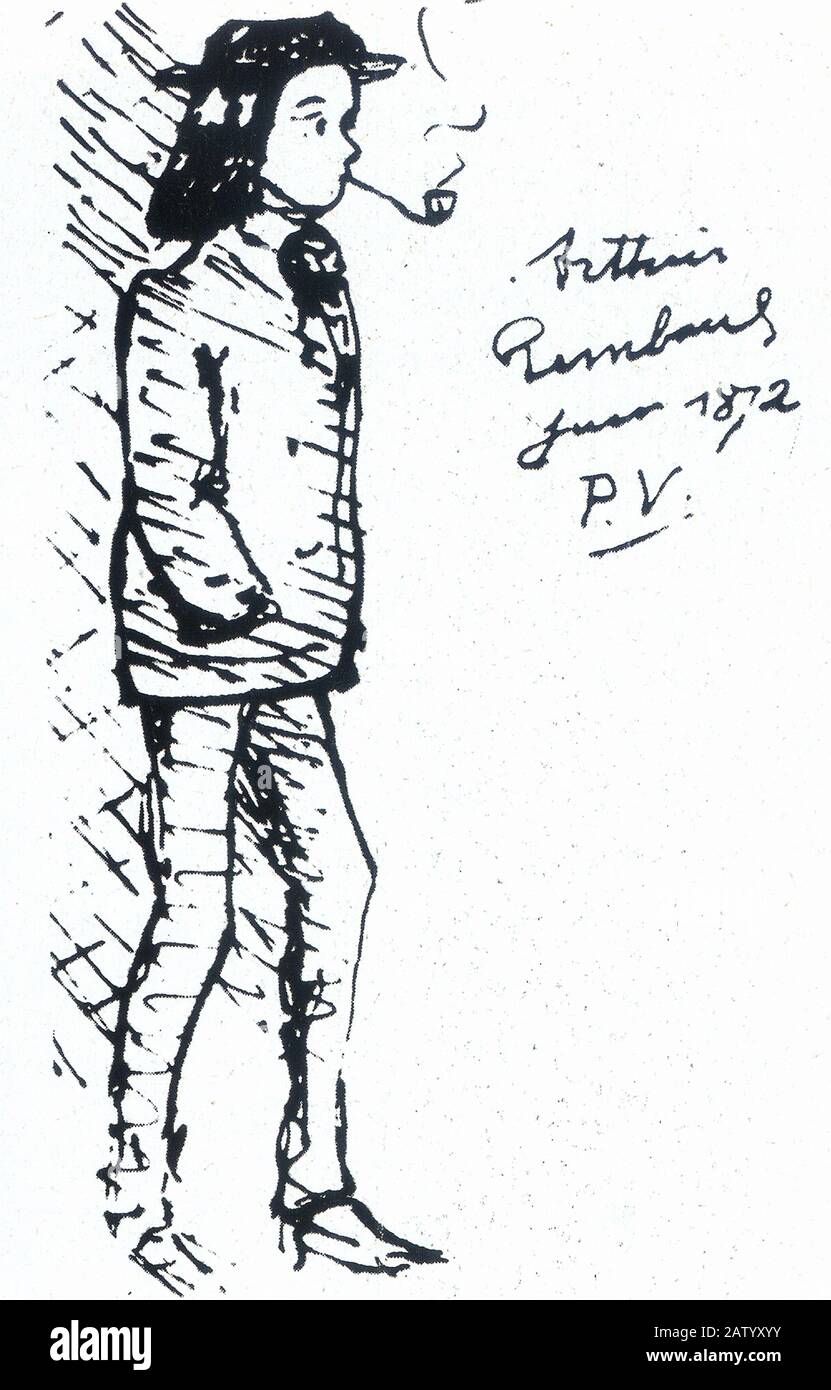 Arthur
Rimbaud
juin 1872
P.V.
alamy
Image ID: 2ATYXYY
www.alamy.com